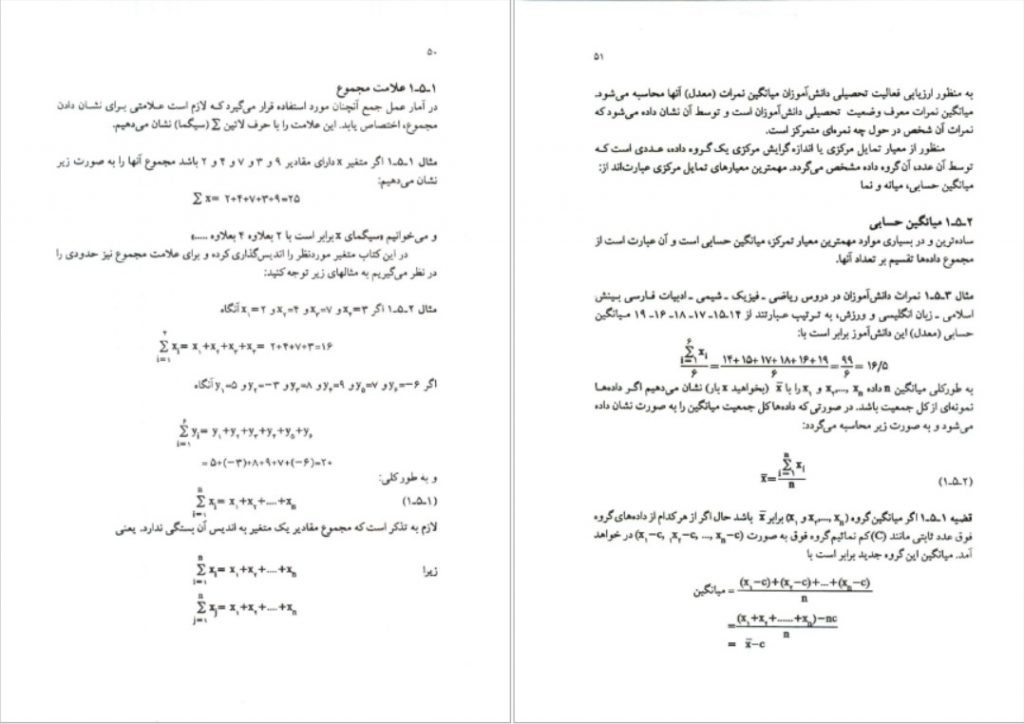 ۵۰
۱ـ۵ـ۱ علامت مجموع
در آمار عمل جمع آنچنان مورد استفاده قرار می‌گیرد که لازم است علامتی برای نشان دادن
مجموع، اختصاص یابد. این علامت را با حرف لاتین Σ (سیگما) نشان می‌دهیم.
مثال ۱ـ۵ـ۱ اگر متغیر x دارای مقادیر ۹ و ۳ و ۷ و ۴ و ۲ باشد مجموع آنها را به صورت زیر
نشان می‌دهیم:
Σ x= ۲+۴+۷+۳+۹=۲۵
و می‌خوانیم «سیگمای x برابر است با ۲ بعلاوه ۴ بعلاوه .....»
در این کتاب متغیر موردنظر را اندیس‌گذاری کرده و برای علامت مجموع نیز حدودی را
در نظر می‌گیریم به مثالهای زیر توجه کنید:
مثال ۲ـ۵ـ۱ اگر x₄=۳ و x₃=۷ و x₂=۴ و x₁=۲ آنگاه
۴
Σ xᵢ= x₁+x₂+x₃+x₄= ۲+۴+۷+۳=۱۶
i=۱
اگر y₆=−۶ و y₅=۷ و y₄=۹ و y₃=۸ و y₂=−۳ و y₁=۵ آنگاه
۶
Σ yᵢ= y₁+y₂+y₃+y₄+y₅+y₆
i=۱
= ۵+(−۳)+۸+۹+۷+(−۶)=۲۰
و به طور کلی:
n
Σ xᵢ= x₁+x₂+....+xₙ (۱ـ۵ـ۱)
i=۱
لازم به تذکر است که مجموع مقادیر یک متغیر به اندیس آن بستگی ندارد. یعنی
n
زیرا Σ xᵢ= x₁+x₂+....+xₙ
i=۱
n
Σ xⱼ= x₁+x₂+....+xₙ
j=۱
۵۱
به منظور ارزیابی فعالیت تحصیلی دانش‌آموزان میانگین نمرات (معدل) آنها محاسبه می‌شود.
میانگین نمرات معرف وضعیت تحصیلی دانش‌آموزان است و توسط آن نشان داده می‌شود که
نمرات آن شخص در حول چه نمره‌ای متمرکز است.
منظور از معیار تمایل مرکزی یا اندازه گرایش مرکزی یک گروه داده، عددی است که
توسط آن عدد، آن گروه داده مشخص می‌گردد. مهمترین معیارهای تمایل مرکزی عبارت‌اند از:
میانگین حسابی، میانه و نما
۲ـ۵ـ۱ میانگین حسابی
ساده‌ترین و در بسیاری موارد مهمترین معیار تمرکز، میانگین حسابی است و آن عبارت است از
مجموع داده‌ها تقسیم بر تعداد آنها.
مثال ۳ـ۵ـ۱ نمرات دانش‌آموزان در دروس ریاضی ـ فیزیک ـ شیمی ـ ادبیات فارسی بینش
اسلامی ـ زبان انگلیسی و ورزش، به ترتیب عبارتند از ۱۴ـ۱۵ـ۱۷ـ۱۸ـ۱۶ـ۱۹ میانگین
حسابی (معدل) این دانش‌آموز برابر است با:
۶
Σ xᵢ
i=۱
۱۴+۱۵+۱۷+۱۸+۱۶+۱۹ ۹۹
= = = ۱۶/۵
۶ ۶ ۶
به طورکلی میانگین n داده xₙ ,...,x₂ و x₁ را با x̄ (بخوانید x بار) نشان می‌دهیم اگر داده‌ها
نمونه‌ای از کل جمعیت باشد. در صورتی که داده‌ها کل جمعیت میانگین را به صورت نشان داده
می‌شود و به صورت زیر محاسبه می‌گردد:
n
Σ xᵢ
i=۱
x̄= (۲ـ۵ـ۱)
n
قضیه ۱ـ۵ـ۱ اگر میانگین گروه (xₙ ,...,x₂ و x₁) برابر x̄ باشد حال اگر از هر کدام از داده‌های گروه
فوق عدد ثابتی مانند (C) کم نمائیم گروه فوق به صورت (x₁−c, x₂−c, ..., xₙ−c) در خواهد
آمد. میانگین این گروه جدید برابر است با
(x₁−c)+(x₂−c)+...+(xₙ−c)
= میانگین
n
(x₁+x₂+......+xₙ)−nc
=
n
= x̄−c